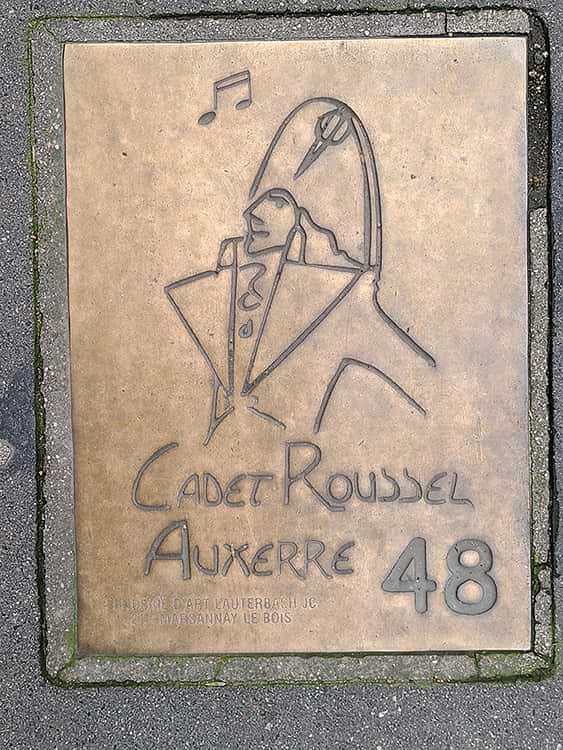 CADET ROUSSEL
AUXERRE 48
FONDERIE D'ART LAUTERBACH JC
21 - MARSANNAY LE BOIS